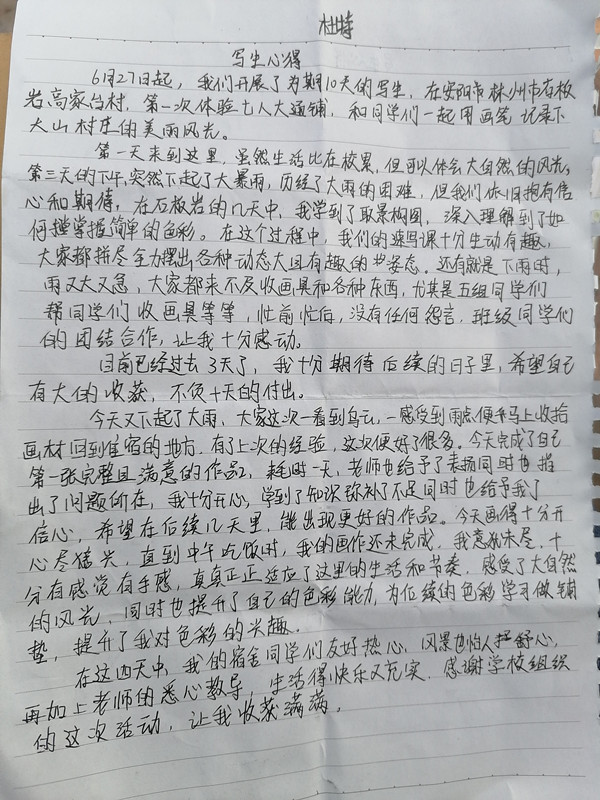 杜特
写生心得
6月27日起，我们开展了为期10天的写生，在安阳市林州市石板
岩高家台村，第一次体验七人大通铺，和同学们一起用画笔记录下
大山村庄的美丽风光。
第一天来到这里，虽然生活比在校累，但可以体会大自然的风光，
第三天的下午，突然下起了大暴雨，历经了大雨的困难，但我们依旧抱有信
心和期待，在石板岩的几天中，我学到了取景构图，深入理解到了如
何掌握简单的色彩。在这个过程中，我们的速写课十分生动有趣，
大家都拼尽全力摆出各种动态大且有趣的姿态。还有就是下雨时，
雨又大又急，大家都来不及收画具和各种东西，尤其是五组同学们
帮同学们收画具等等，忙前忙后，没有任何怨言，班级同学们
的团结合作，让我十分感动。
目前已经过去3天了，我十分期待后续的日子里，希望自己
有大的收获，不负十天的付出。
今天又下起了大雨，大家这次一看到乌云，一感受到雨点便马上收拾
画材回到住宿的地方，有了上次的经验，这次便好了很多。今天完成了自己
第一张完整且满意的作品，耗时一天，老师也给予了表扬同时也指
出了问题所在，我十分开心，学到了知识弥补了不足同时也给予我了
信心，希望在后续几天里，能出现更好的作品。今天画得十分开
心尽猛兴，直到中午吃饭时，我的画作还未完成，我意犹未尽，十
分有感觉有手感，真真正正适应了这里的生活和节奏，感受了大自然
的风光，同时也提升了自己的色彩能力，为后续的色彩学习做铺
垫，提升了我对色彩的兴趣。
在这四天中，我的宿舍同学们友好热心，风景也怡人舒心，
再加上老师的悉心教导，生活得快乐又充实，感谢学校组织
的这次活动，让我收获满满。